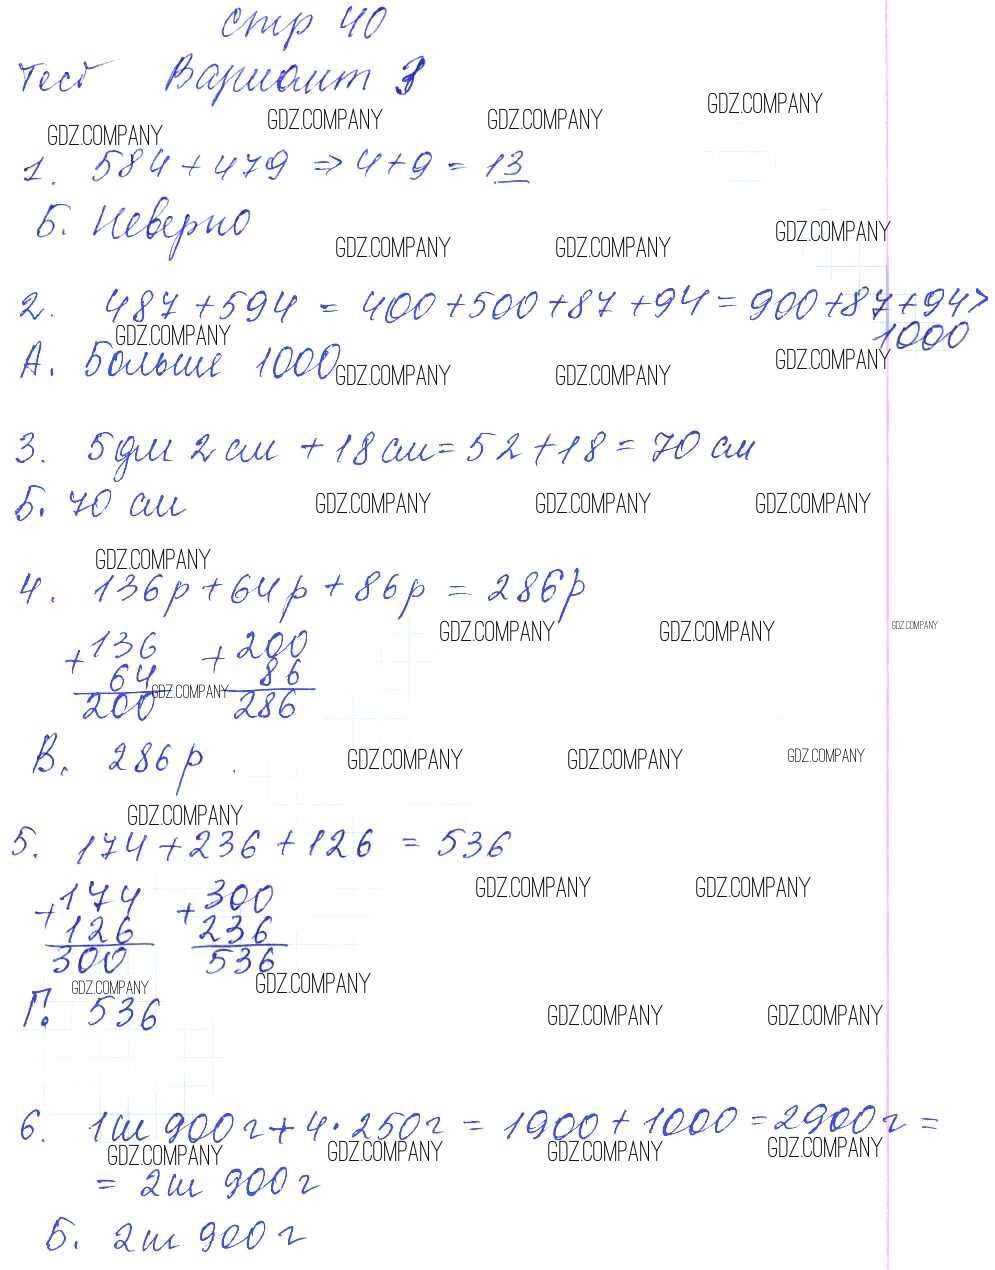 Стр 40
Тест Вариант 3
GDZ.COMPANY GDZ.COMPANY GDZ.COMPANY GDZ.COMPANY
1. 584 + 479 ⇒ 4 + 9 = 13
Б. Неверно
GDZ.COMPANY GDZ.COMPANY GDZ.COMPANY
2. 487 + 594 = 400 + 500 + 87 + 94 = 900 + 87 + 94 >
1000
GDZ.COMPANY
А. Больше 1000
GDZ.COMPANY GDZ.COMPANY GDZ.COMPANY
3. 5 дм 2 см + 18 см = 52 + 18 = 70 см
Б. 70 см
GDZ.COMPANY GDZ.COMPANY GDZ.COMPANY
GDZ.COMPANY
4. 136 р + 64 р + 86 р = 286 р
GDZ.COMPANY GDZ.COMPANY GDZ.COMPANY
+ 136 + 200
64 86
GDZ.COMPANY
200 286
В. 286 р.
GDZ.COMPANY GDZ.COMPANY GDZ.COMPANY
GDZ.COMPANY
5. 174 + 236 + 126 = 536
+ 174 + 300
GDZ.COMPANY GDZ.COMPANY
126 236
300 536
GDZ.COMPANY GDZ.COMPANY
Г. 536
GDZ.COMPANY GDZ.COMPANY
6. 1 кг 900 г + 4 · 250 г = 1900 + 1000 = 2900 г =
GDZ.COMPANY GDZ.COMPANY GDZ.COMPANY GDZ.COMPANY
= 2 кг 900 г
Б. 2 кг 900 г